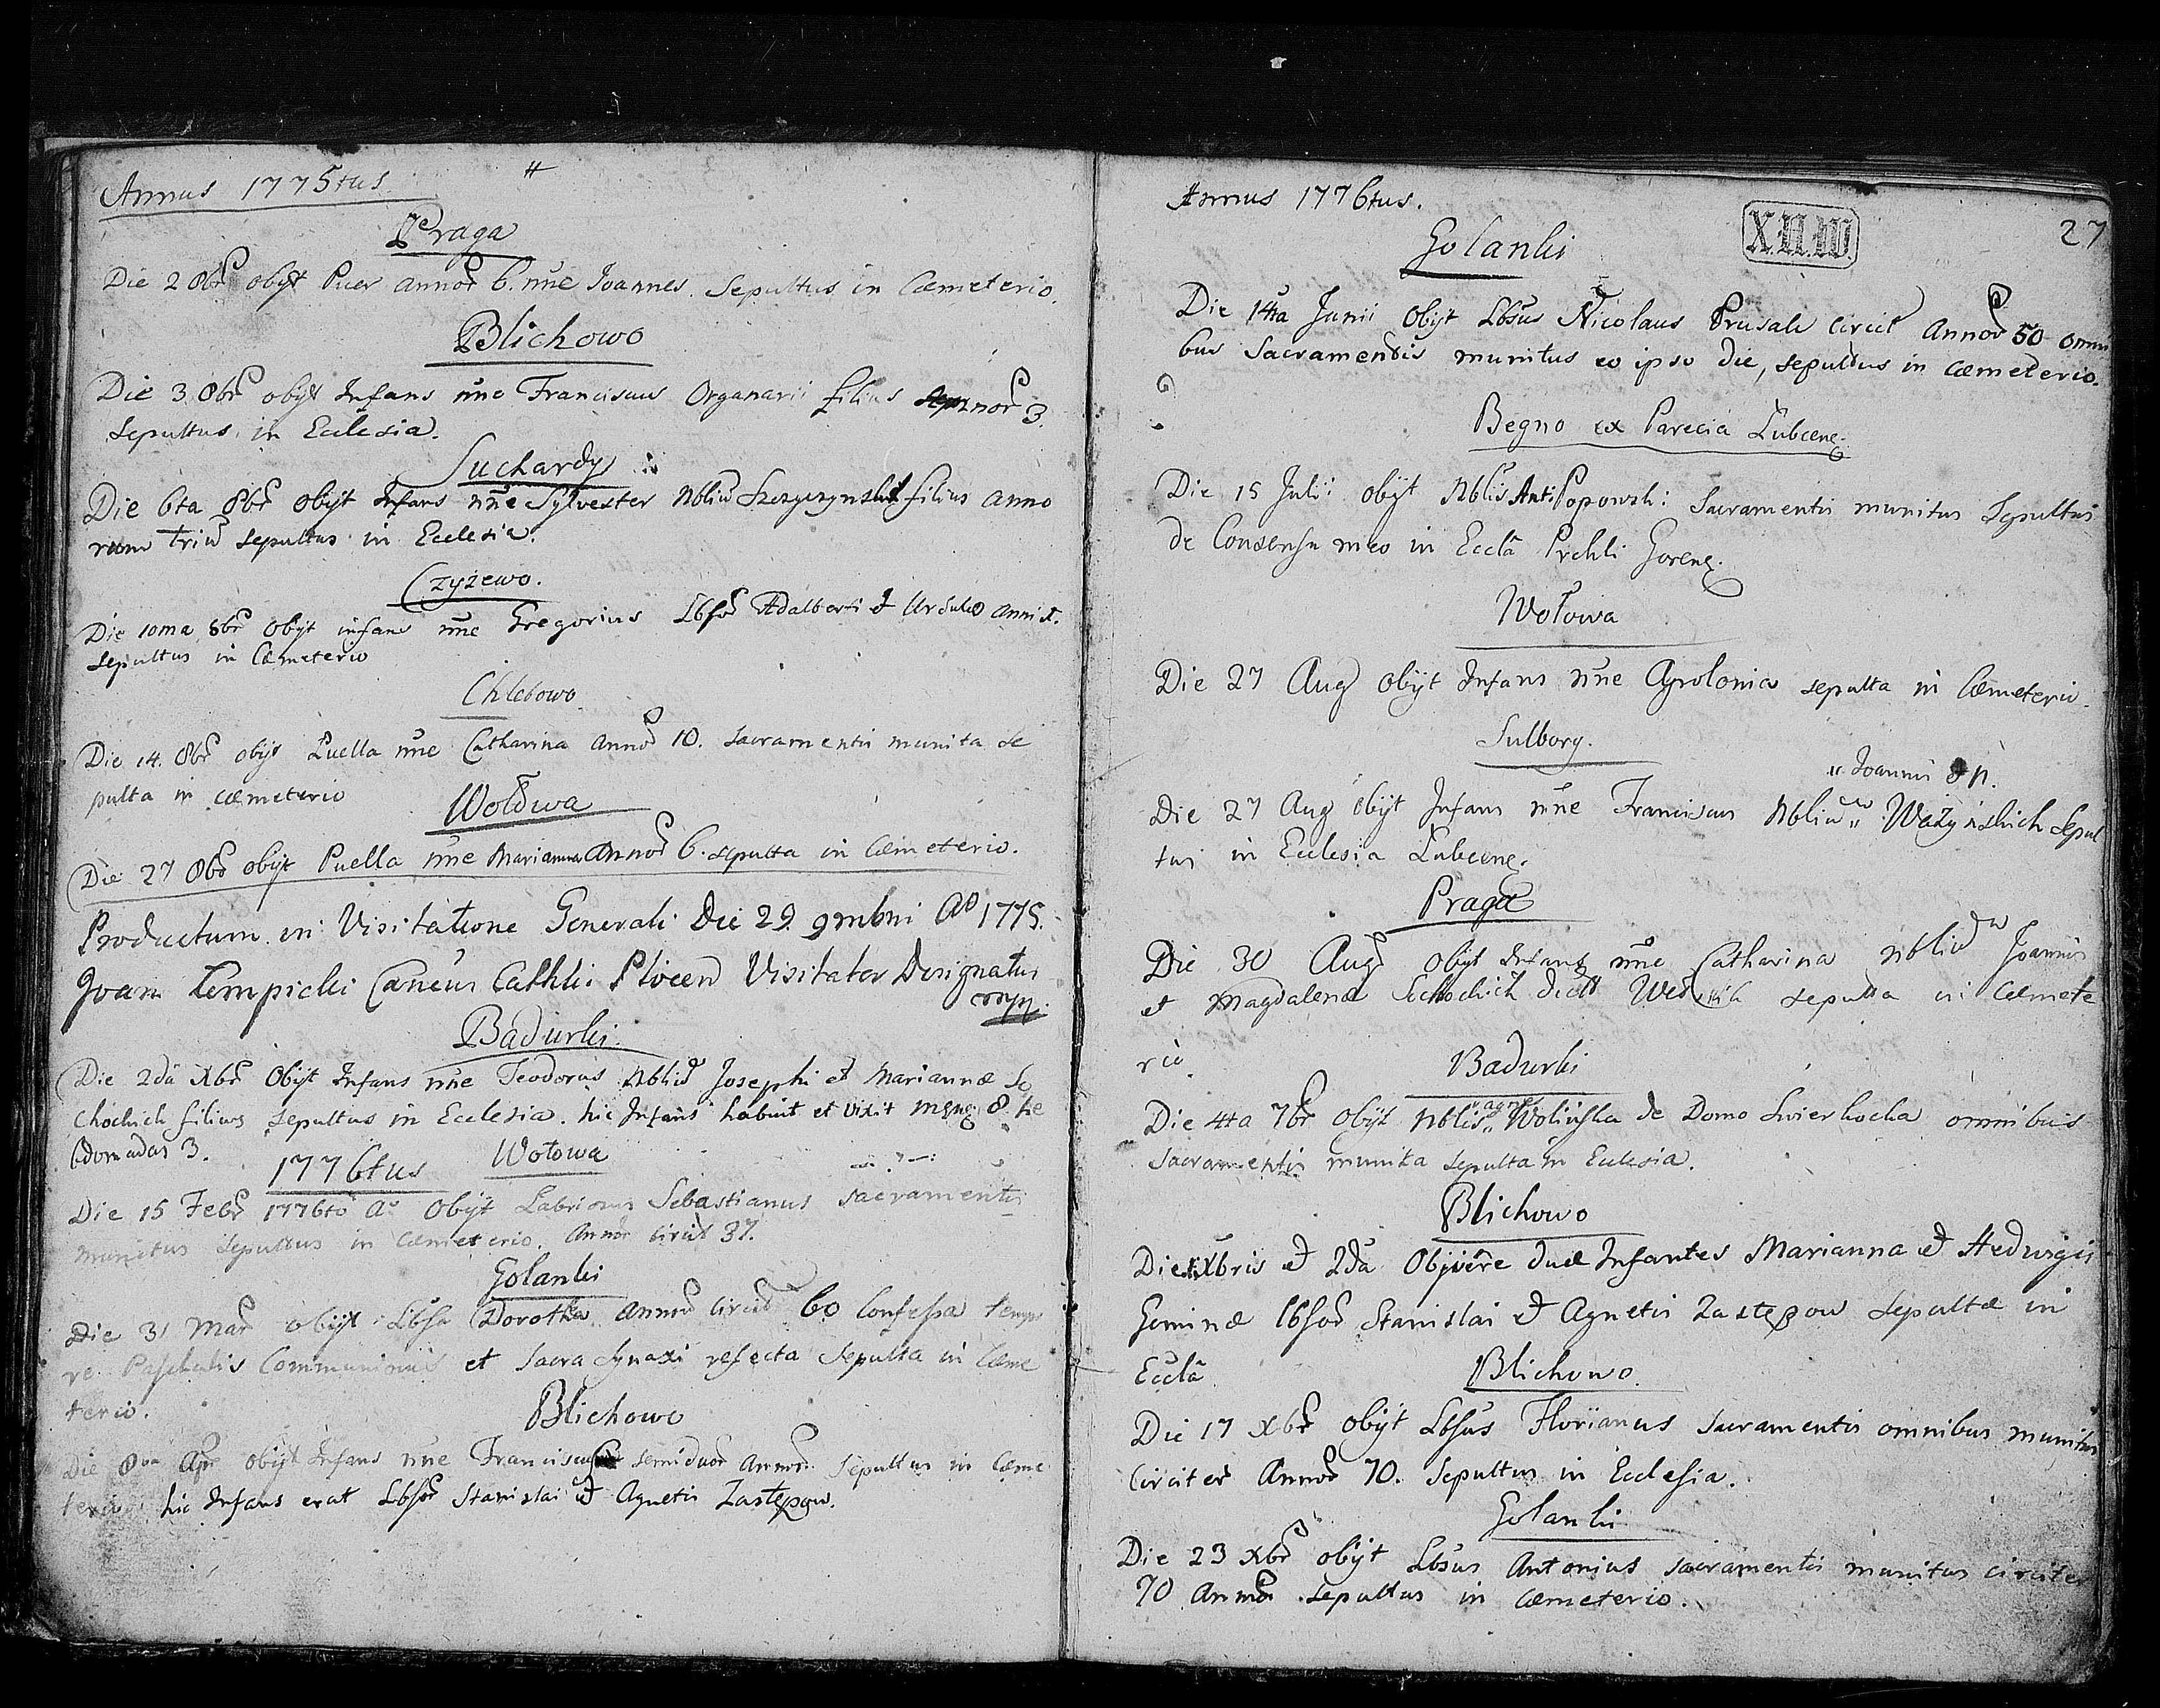 Annus 1775tus
Praga
Die 2 8br obijt Puer annor 6. nne Joannes. Sepultus in Cæmeterio.
Blichowo
Die 3 8br obijt Infans nne Franciscus Organarii filius annor 3.
Sepultus in Ecclesia.
Suchardy
Die 6ta 8br obijt Infans nne Sylvester Nbliu Szczyczynskich filius anno
rum triu sepultus in Ecclesia.
Czyżewo.
Die 10ma 8br obijt infans nne Gregorius Lbsor Adalberti et Ursulæ anni 1.
sepultus in Cæmeterio
Chlebowo
Die 14. 8br obijt Puella nne Catharina annor 10. sacramentis munita se
pulta in cæmeterio
Wołowa
Die 27 8br obijt Puella nne Marianna Annor 6. sepulta in Cæmeterio.
Productum in Visitatione Generali Die 29 9mbni Ao 1775.
Joan Lempicki Cancus Cathlis Plocen Visitator Designatus
mpp.
Badurki
Die 2da Xbr Obijt Infans nne Teodorus Nbliu Josephi et Mariannæ So
chockich filius sepultus in Ecclesia. hic Infans habuit et vixit mens: 8. he
bdomadas 3.
1776tus Wołowa
Die 15 Febr 1776to Ao Obijt Labriosus Sebastianus sacramentis
munitus sepultus in Cæmeterio. Annor circit 37.
Golanki
Die 31 Mar obijt Lbsa Dorothea annor circit 60 Confessa tempo
re Paschalis Communionis et sacra Synaxi refecta sepulta in Cæme
terio.
Blichowo
Die 8va Apr obijt Infans nne Franciscus semiduor Annor. Sepultus in Cæme
terio hic Infans erat Lbsor Stanislai et Agnetis Zastępow.
Annus 1776tus.
X.H.W.
27
Golanki
Die 14ta Junii Obijt Lbsus Nicolaus Prusak circit Annor 50 omni
bus Sacramentis munitus eo ipso die, sepultus in Cæmeterio.
Begno ex Parecia Łubcene.
Die 15 Julii obijt Nblis Ant: Popowski: Sacramentis munitus Sepultus
de Consensu meo in Ecclâ Prchli Gorene.
Wołowa
Die 27 Aug obijt Infans nne Apolonia sepulta in Cæmeterio.
Sulbory.
" Joannis et N.
Die 27 Aug obijt Infans nne Franciscus Nbliu " Ważyńskich Sepul
tus in Ecclesia Łubcene.
Praga
Die 30 Aug obijt Infans nne Catharina nbliu Joannis
et Magdalenæ Sochockich dict sepulta in Cæmete
rio
Badurki
Die 4ta 7br Obijt Nblis " Agnes Wolińska de Domo Swierkocka omnibus
Sacramentis munita sepulta in Ecclesia.
Blichowo
Die Xbris et 2da Objvere duæ Infantes Marianna et Hedwigis
Geminæ lbsor Stanislai et Agnetis Zastępow sepultæ in
Ecclâ
Blichowo.
Die 17 Xbr obijt Lbsus Florianus sacramentis omnibus munitus
Circiter Annor 70. Sepultus in Ecclesia.
Golanki
Die 23 Xbr obijt Lbsus Antonius sacramentis munitus circiter
70 Annor sepultus in Cæmeterio.